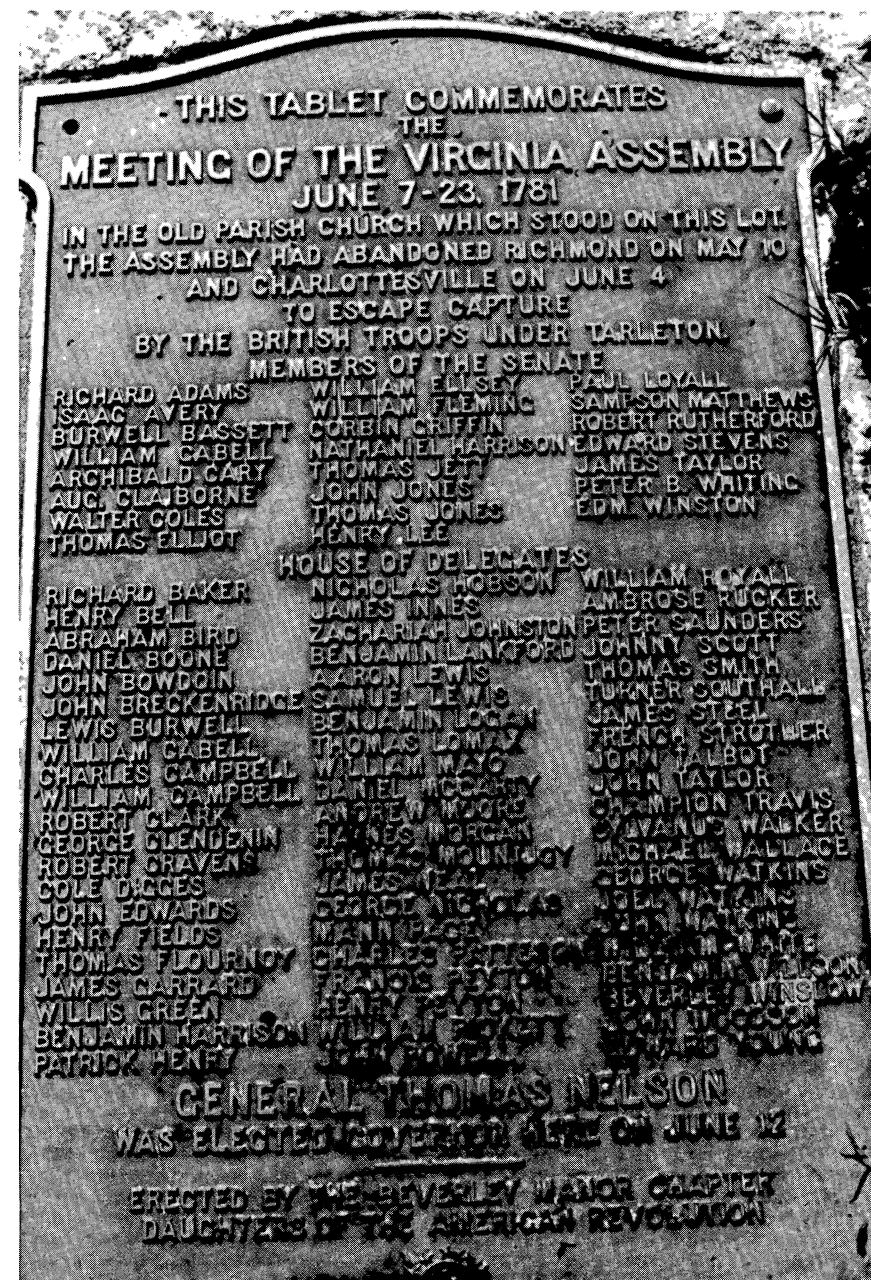 THIS TABLET COMMEMORATES
THE
MEETING OF THE VIRGINIA ASSEMBLY
JUNE 7-23, 1781
IN THE OLD PARISH CHURCH WHICH STOOD ON THIS LOT.
THE ASSEMBLY HAD ABANDONED RICHMOND ON MAY 10
AND CHARLOTTESVILLE ON JUNE 4
TO ESCAPE CAPTURE
BY THE BRITISH TROOPS UNDER TARLETON.
MEMBERS OF THE SENATE
RICHARD ADAMS
ISAAC AVERY
BURWELL BASSETT
WILLIAM CABELL
ARCHIBALD CARY
AUG. CLAIBORNE
WALTER COLES
THOMAS ELLIOT
WILLIAM ELLSEY
WILLIAM FLEMING
CORBIN GRIFFIN
NATHANIEL HARRISON
THOMAS JETT
JOHN JONES
THOMAS JONES
HENRY LEE
PAUL LOYALL
SAMPSON MATTHEWS
ROBERT RUTHERFORD
EDWARD STEVENS
JAMES TAYLOR
PETER B. WHITING
EDM. WINSTON
HOUSE OF DELEGATES
RICHARD BAKER
HENRY BELL
ABRAHAM BIRD
DANIEL BOONE
JOHN BOWDOIN
JOHN BRECKENRIDGE
LEWIS BURWELL
WILLIAM CABELL
CHARLES CAMPBELL
WILLIAM CAMPBELL
ROBERT CLARK
GEORGE CLENDENIN
ROBERT CRAVENS
COLE DIGGES
JOHN EDWARDS
HENRY FIELDS
THOMAS FLOURNOY
JAMES GARRARD
WILLIS GREEN
BENJAMIN HARRISON
PATRICK HENRY
NICHOLAS HOBSON
JAMES INNES
ZACHARIAH JOHNSTON
BENJAMIN LANKFORD
AARON LEWIS
SAMUEL LEWIS
BENJAMIN LOGAN
THOMAS LOMAX
WILLIAM MAYO
DANIEL MCCARTY
ANDREW MOORE
HAYNES MORGAN
THOMAS MOUNTJOY
JAMES NEAL
GEORGE NICHOLAS
MANN PAGE
CHARLES PATTESON
FRANCIS PEYTON
HENRY PEYTON
WILLIAM PICKETT
JOHN POWELL
WILLIAM ROYALL
AMBROSE RUCKER
PETER SAUNDERS
JOHNNY SCOTT
THOMAS SMITH
TURNER SOUTHALL
JAMES STEEL
FRENCH STROTHER
JOHN TALBOT
JOHN TAYLOR
CHAMPION TRAVIS
SYLVANUS WALKER
MICHAEL WALLACE
GEORGE WATKINS
JOEL WATKINS
JOHN WATKINS
WILLIAM WHITE
BENJAMIN WILSON
BEVERLEY WINSLOW
JOHN WOODSON
EDWARD YOUNG
GENERAL THOMAS NELSON
WAS ELECTED GOVERNOR HERE ON JUNE 12
ERECTED BY THE BEVERLEY MANOR CHAPTER
DAUGHTERS OF THE AMERICAN REVOLUTION